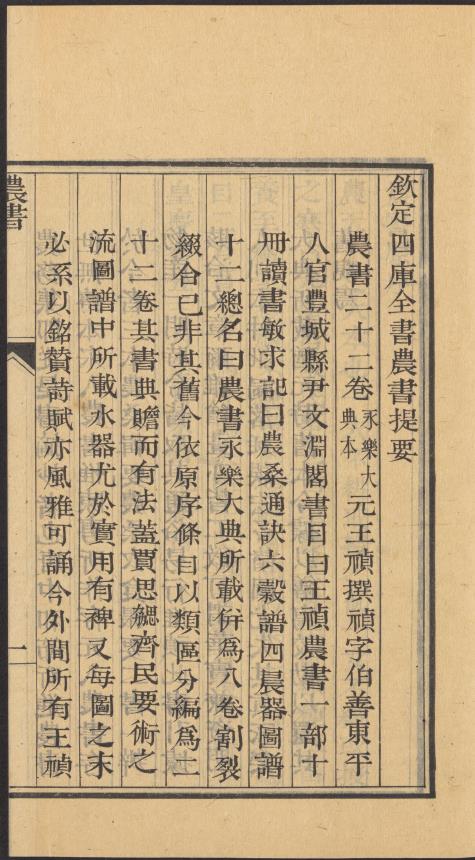 欽定四庫全書農書提要
農書二十二卷永樂大典本元王禎撰禎字伯善東平
人官豐城縣尹文淵閣書目曰王禎農書一部十
冊讀書敏求記曰農桑通訣六穀譜四農器圖譜
十二總名曰農書永樂大典所載併爲八卷割裂
綴合已非其舊今依原序條目以類區分編爲二
十二卷其書典贍而有法蓋賈思勰齊民要術之
流圖譜中所載水器尤於實用有裨又每圖之末
必系以銘贊詩賦亦風雅可誦今外間所有王禎
農書
一